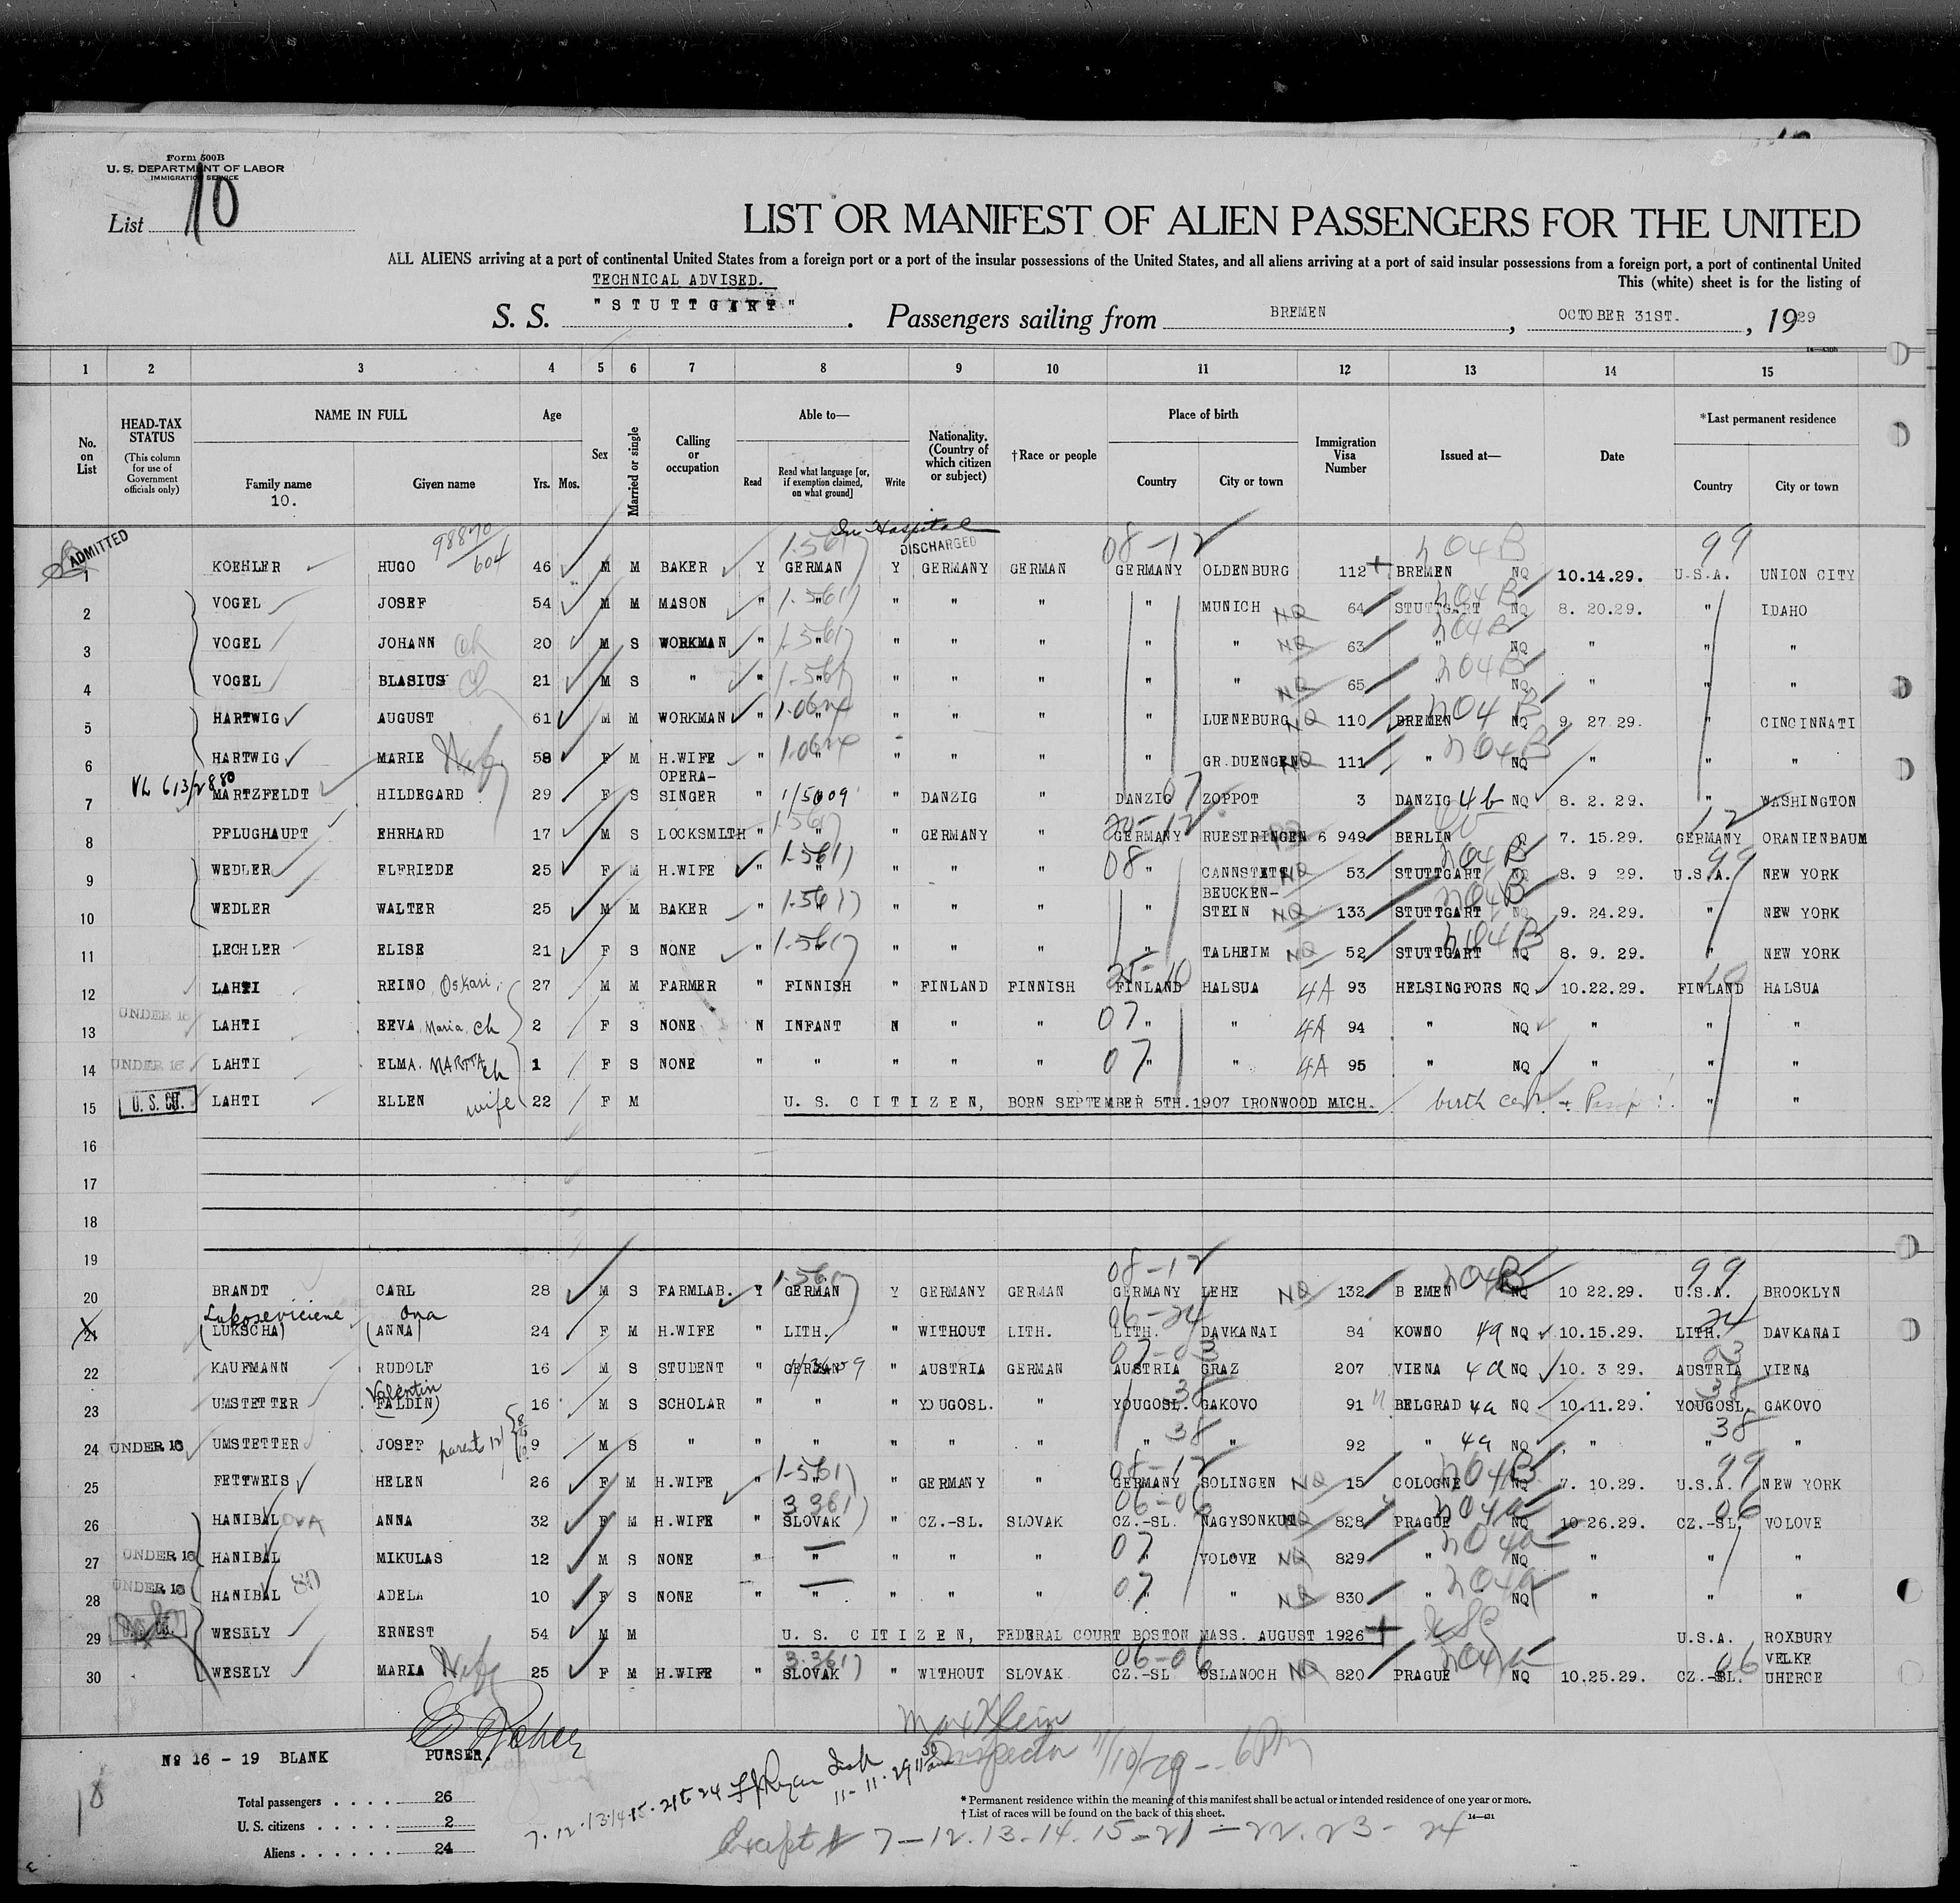 Form 500B
U. S. DEPARTMENT OF LABOR
IMMIGRATION SERVICE
List 10
LIST OR MANIFEST OF ALIEN PASSENGERS FOR THE UNITED
ALL ALIENS arriving at a port of continental United States from a foreign port or a port of the insular possessions of the United States, and all aliens arriving at a port of said insular possessions from a foreign port, a port of continental United
This (white) sheet is for the listing of
TECHNICAL ADVISED.
S. S. "STUTTGART". Passengers sailing from BREMEN, OCTOBER 31ST., 1929
1 2 3 4 5 6 7 8 9 10 11 12 13 14 15
No. on List
HEAD-TAX STATUS (This column for use of Government officials only)
NAME IN FULL Family name Given name
10.
Age Yrs. Mos.
Sex
Married or single
Calling or occupation
Able to— Read Read what language [or, if exemption claimed, on what ground] Write
Nationality. (Country of which citizen or subject)
†Race or people
Place of birth Country City or town
Immigration Visa Number
Issued at—
Date
*Last permanent residence Country City or town
In Hospital
DISCHARGED
ADMITTED 98870/604 1-561 08-12 204B 99
1 KOEHLER HUGO 46 M M BAKER Y GERMAN Y GERMANY GERMAN GERMANY OLDENBURG 112 BREMEN NQ 10.14.29. U.S.A. UNION CITY
2 VOGEL JOSEF 54 M M MASON " " " " " " MUNICH NQ 64 STUTTGART NQ 8. 20.29. " IDAHO
3 VOGEL JOHANN ch 20 M S WORKMAN " " " " " " " NQ 63 " NQ " " "
4 VOGEL BLASIUS ch 21 M S " " " " " " " " NQ 65 " NQ " " "
5 HARTWIG AUGUST 61 M M WORKMAN " " " " " " LUENEBURG NQ 110 BREMEN NQ 9. 27 29. " CINCINNATI
6 HARTWIG MARIE Wife 58 F M H.WIFE " " " " " " GR.DUENGEN NQ 111 " NQ " " "
VL 613/2880
7 MARTZFELDT HILDEGARD 29 F S OPERA-SINGER " " " DANZIG " DANZIG ZOPPOT 3 DANZIG 4b NQ 8. 2. 29. " WASHINGTON
8 PFLUGHAUPT EHRHARD 17 M S LOCKSMITH " " " GERMANY " GERMANY RUESTRINGEN 6 949 BERLIN Q 7. 15.29. GERMANY ORANIENBAUM
9 WEDLER ELFRIEDE 25 F M H.WIFE " " " " " " CANNSTETT NQ 53 STUTTGART NQ 8. 9 29. U.S.A. NEW YORK
10 WEDLER WALTER 25 M M BAKER " " " " " " BEUCKEN-STEIN NQ 133 STUTTGART NQ 9. 24.29. " NEW YORK
11 LECHLER ELISE 21 F S NONE " " " " " " TALHEIM NQ 52 STUTTGART NQ 8. 9. 29. " NEW YORK
12 LAHTI REINO Oskari 27 M M FARMER " FINNISH " FINLAND FINNISH FINLAND HALSUA 4A 93 HELSINGFORS NQ 10.22.29. FINLAND HALSUA
UNDER 16
13 LAHTI EEVA Maria ch 2 F S NONE N INFANT N " " " " 4A 94 " NQ " " "
14 UNDER 16 LAHTI ELMA. MARTTA ch 1 F S NONE " " " " " " " 4A 95 " NQ " " "
15 U.S. CIT. LAHTI ELLEN wife 22 F M U. S. CITIZEN, BORN SEPTEMBER 5TH.1907 IRONWOOD MICH. birth cert. " "
16
17
18
19
20 BRANDT CARL 28 M S FARMLAB. Y GERMAN Y GERMANY GERMAN GERMANY LEHE NQ 132 B EMEN NQ 10 22.29. U.S.A. BROOKLYN
Lukoseviciene Ona
21 (LUKSCHA) (ANNA) 24 F M H.WIFE " LITH. " WITHOUT LITH. LITH. DAVKANAI 84 KOWNO 4a NQ 10.15.29. LITH. DAVKANAI
22 KAUFMANN RUDOLF 16 M S STUDENT " GERMAN " AUSTRIA GERMAN AUSTRIA GRAZ 207 VIENA 4a NQ 10. 3 29. AUSTRIA VIENA
Valentin
23 UMSTETTER (FALDIN) 16 M S SCHOLAR " " " YOUGOSL. " YOUGOSL. GAKOVO 91 BELGRAD 4a NQ 10.11.29. YOUGOSL. GAKOVO
24 UNDER 16 UMSTETTER JOSEF 9 M S " " " " " " " " 92 " 4a NQ " " "
25 FETTWEIS HELEN 26 F M H.WIFE " " " GERMANY " GERMANY SOLINGEN NQ 15 COLOGNE NQ 7. 10.29. U.S.A. NEW YORK
26 HANIBAL OVA ANNA 32 F M H.WIFE " SLOVAK " CZ.-SL. SLOVAK CZ.-SL. NAGYSONKUT NQ 828 PRAGUE NQ 10 26.29. CZ.-SL. VOLOVE
27 UNDER 16 HANIBAL MIKULAS 12 M S NONE " " " " " " VOLOVE NQ 829 " NQ " " "
28 UNDER 16 HANIBAL ADELA 10 F S NONE " " " " " " " NQ 830 " NQ " " "
29 WESELY ERNEST 54 M M U. S. CITIZEN, FEDERAL COURT BOSTON MASS. AUGUST 1926 U.S.A. ROXBURY
30 WESELY MARIA Wife 25 F M H.WIFE " SLOVAK " WITHOUT SLOVAK CZ.-SL OSLANOCH NQ 820 PRAGUE NQ 10.25.29. CZ.-SL. VELKE UHERCE
Nº 16 - 19 BLANK PURSER.
Max Klein
Inspector 11/10/29 - 6PM
Total passengers .... 26
U. S. citizens ..... 2
Aliens ...... 24
7.12.13.14.15.21 to 24
11-11-29
* Permanent residence within the meaning of this manifest shall be actual or intended residence of one year or more.
† List of races will be found on the back of this sheet.
14—431
Except # 7-12.13-14.15-21-22.23-24